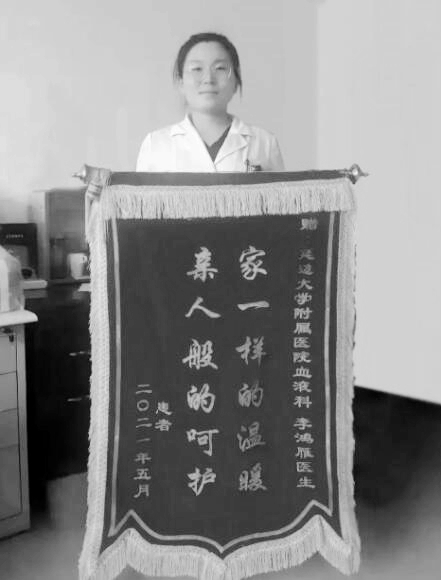 赠:延边大学附属医院血液科 李鸿雁医生
家一样的温暖
亲人般的呵护
患者
二〇二一年五月